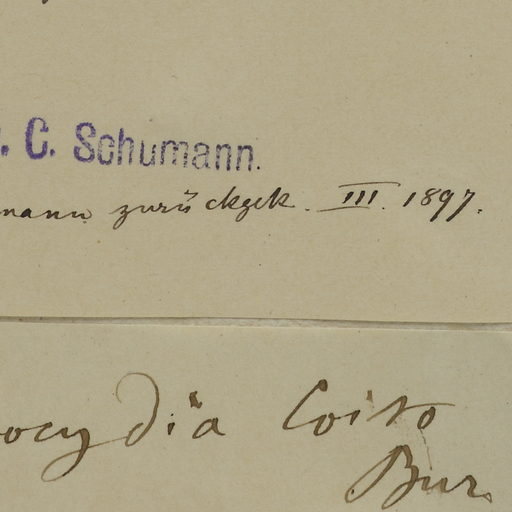 . C. Schumann.
mann zurückgek. III. 1897.
ocydia Coito
Bur.